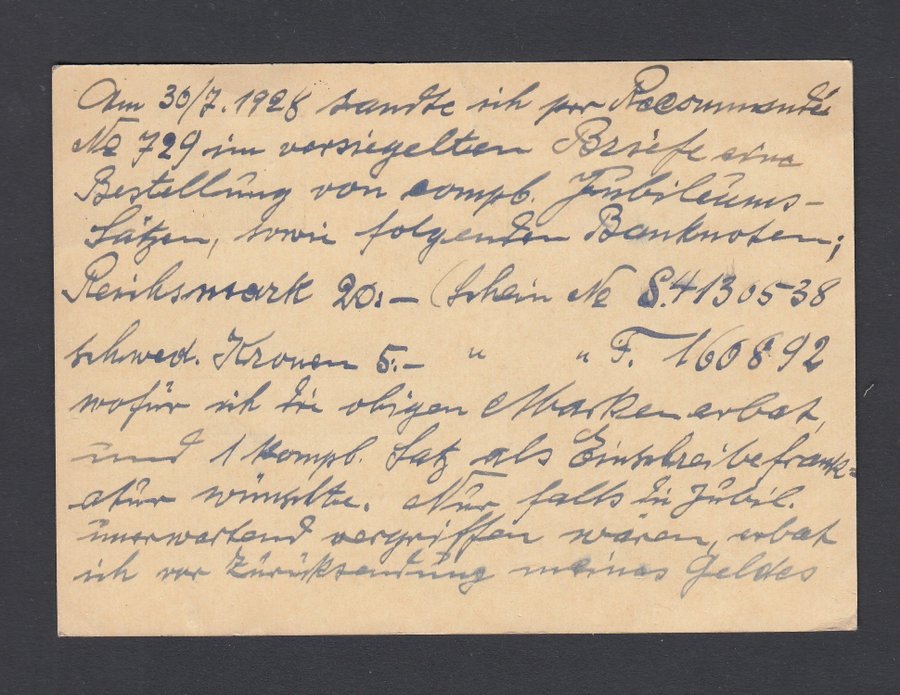 Am 30/7. 1928 sandte ich per Recommandé
No 729 im versiegelten Briefe eine
Bestellung von compl. Jubiläums-
Sätzen, sowie folgenden Banknoten;
Reichsmark 20.- (Schein No S.4130538
schwed. Kronen 5.- " " F. 160892
wofür ich die obigen Marken erbat,
und 1 kompl. Satz als Einschreibefrank=
atur wünschte. Nur falls die Jubil.
unerwartend vergriffen wären, erbat
ich Zurücksendung meines Geldes